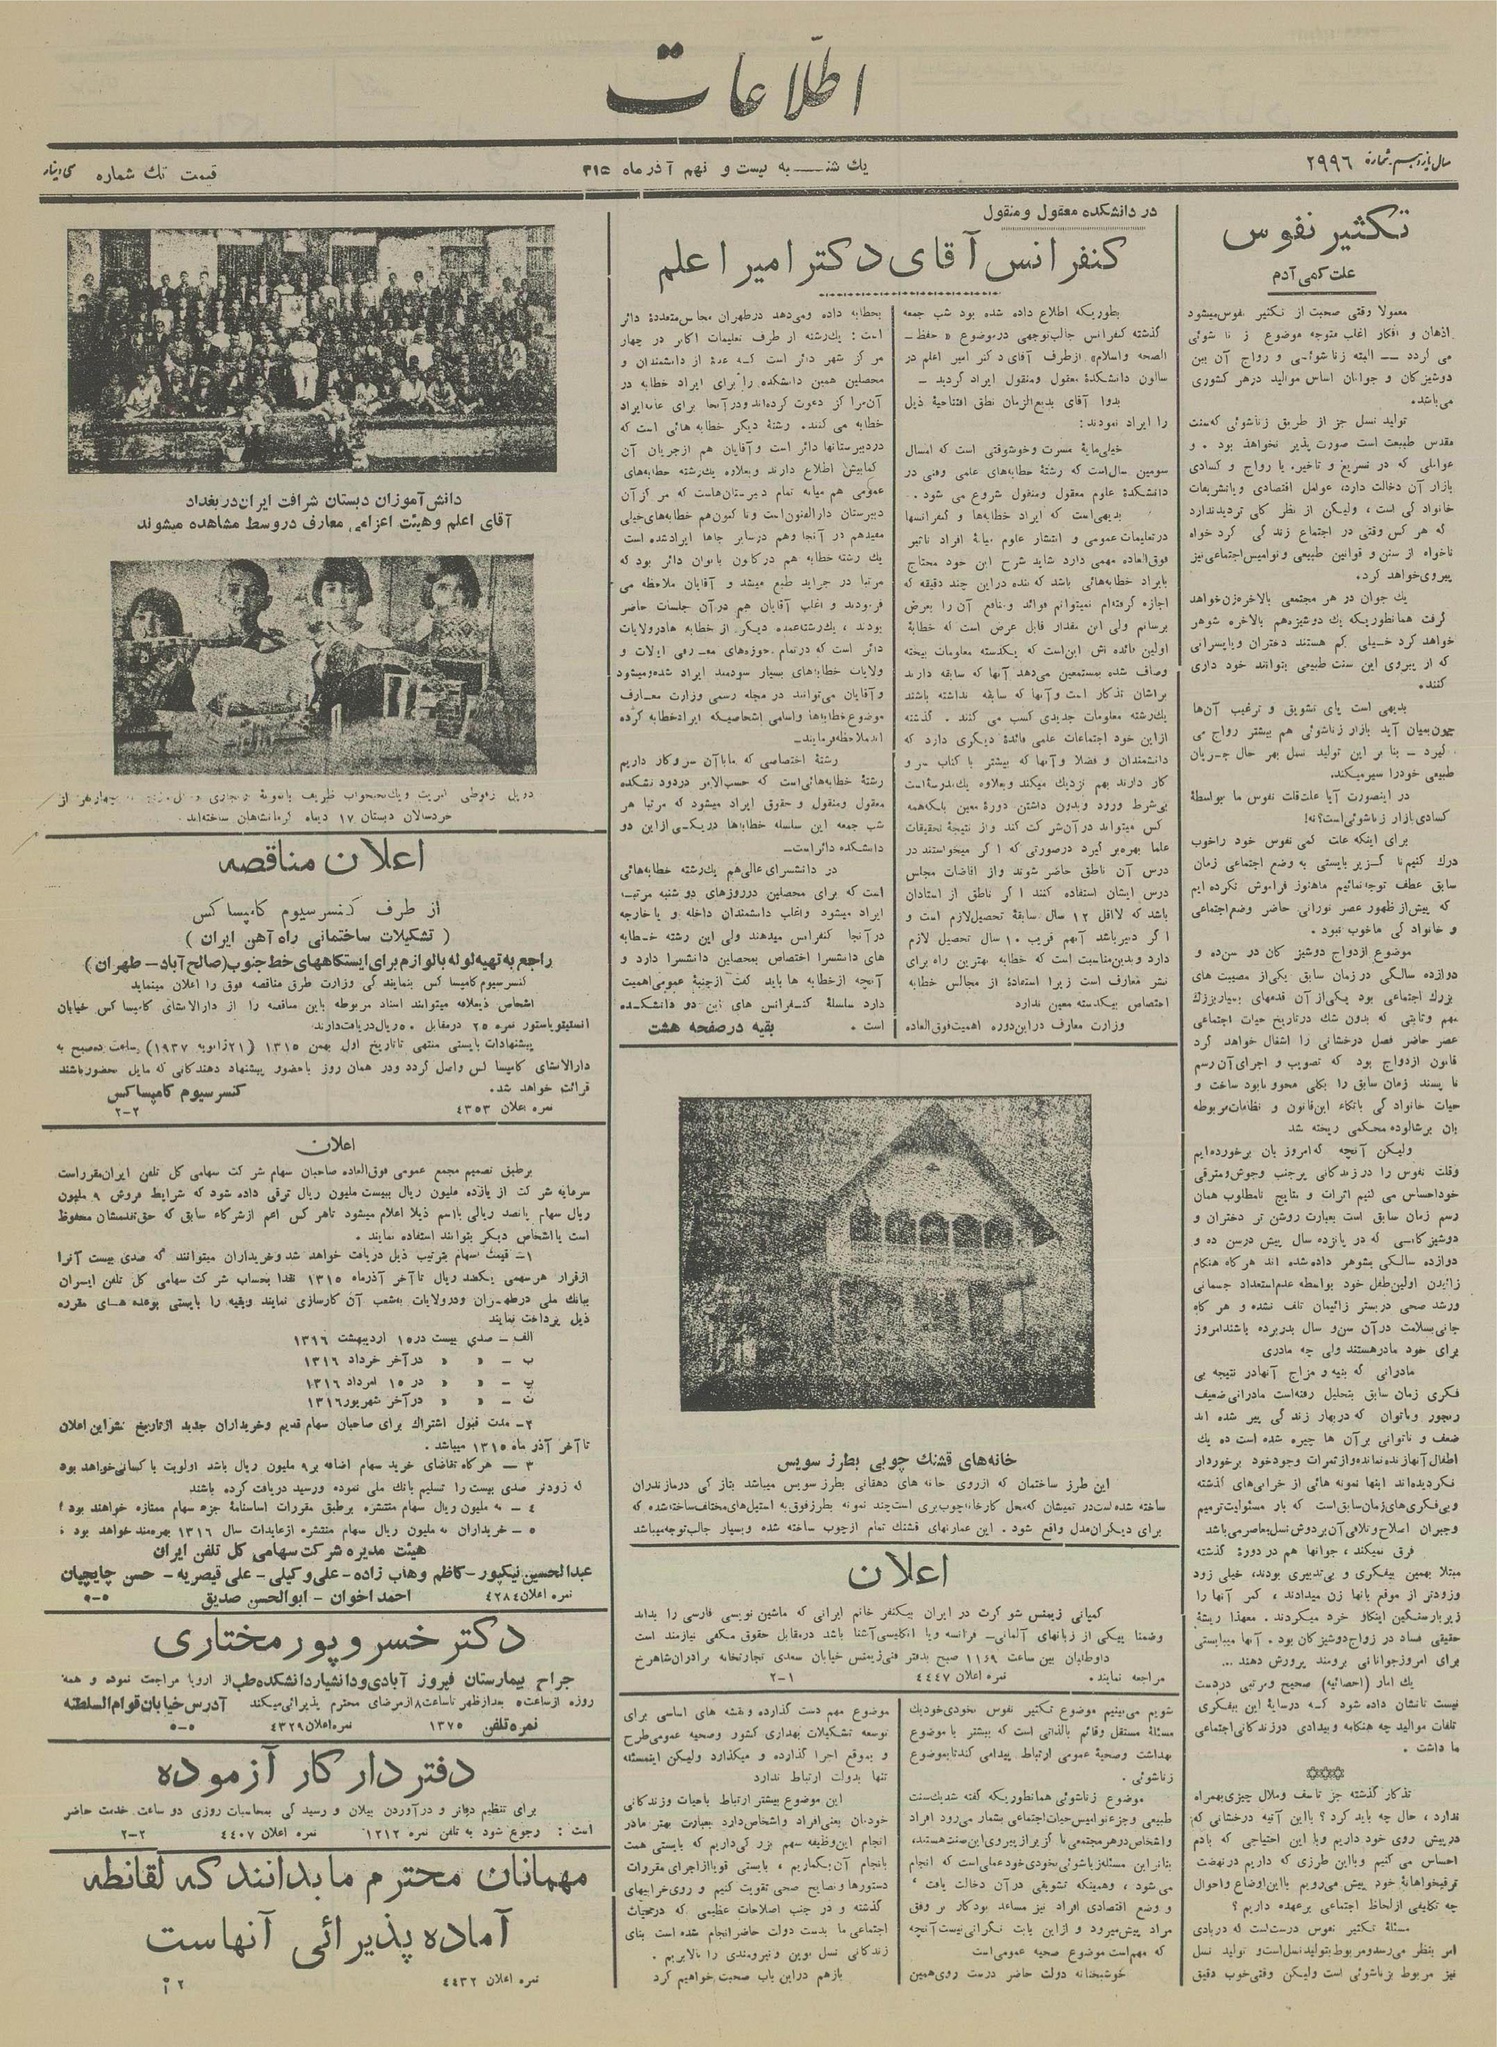 اطلاعات
سال یازدهم شماره ۲۹۹۶
یك شنبه بیست و نهم آذر ماه ۳۱۵
قیمت تك شماره سی دینار
تکثیر نفوس
علت کمی آدم
معمولا وقتی صحبت از تکثیر نفوس میشود
اذهان و افکار اغلب متوجه موضوع زناشوئی
می گردد — البته زناشوئی و رواج آن بین
دوشیزگان و جوانان اساس موالید در هر کشوری
می‌باشد.
تولید نسل جز از طریق زناشوئی که سنت
مقدس طبیعت است صورت پذیر نخواهد بود. و
عواملی که در تسریع و تاخیر. یا رواج و کسادی
بازار آن دخالت دارد، عوامل اقتصادی و یا تشریفات
خانوادگی است ، ولیکن از نظر کلی تردید ندارد
که هر کس وقتی در اجتماع زندگی کرد خواه
ناخواه از سنن و قوانین طبیعی و نوامیس اجتماعی نیز
پیروی خواهد کرد.
یك جوان در هر مجتمعی بالاخره زن خواهد
گرفت همانطوریکه یك دوشیزه هم بالاخره شوهر
خواهد کرد خیلی کم هستند دختران و یا پسرانی
که از پیروی این سنت طبیعی بتوانند خود داری
کنند.
بدیهی است پای تشویق و ترغیب آن‌ها
چون بمیان آید بازار زناشوئی هم بیشتر رواج می
گیرد – بنا بر این تولید نسل بهر حال جریان
طبیعی خود را سیر میکند.
در اینصورت آیا علت قلت نفوس ما بواسطهٔ
کسادی بازار زناشوئی است؟ نه!
برای اینکه علت کمی نفوس خود را خوب
درك کنیم ناگزیر بایستی به وضع اجتماعی زمان
سابق عطف توجه نمائیم ما هنوز فراموش نکرده ایم
که پیش از ظهور عصر نورانی حاضر وضع اجتماعی
و خانوادگی ما خوب نبود.
موضوع ازدواج دوشیزگان در سن ده و
دوازده سالگی در زمان سابق یکی از مصیبت های
بزرك اجتماعی بود یکی از آن قدمهای بسیار بزرك
مهم و ثابتی که بدون شك در تاریخ حیات اجتماعی
عصر حاضر فصل درخشانی را اشغال خواهد کرد
قانون ازدواج بود که تصویب و اجرای آن رسم
نا پسند زمان سابق را بکلی محو و نابود ساخت و
حیات خانوادگی باتکاء این قانون و نظامات مربوطه
بآن بر شالوده محکمی ریخته شد
ولیکن آنچه که امروز بآن برخورده ایم
وقلت نفوس را در زندگانی پر جنب و جوش و مترقی
خود احساس می کنیم اثرات و نتایج نامطلوب همان
رسم زمان سابق است بعبارت روشن تر دختران و
دوشیزگانی که در پانزده سال پیش در سن ده و
دوازده سالگی بشوهر داده شده اند هر گاه هنگام
زائیدن اولین طفل خود بواسطه عدم استعداد جسمانی
ورشد صحی در بستر زائیمان تلف نشده و هر گاه
جانی بسلامت در آن سن و سال بدر برده باشند امروز
برای خود مادر هستند ولی چه مادری
مادرانی که بنیه و مزاج آنها در نتیجه بی
فکری زمان سابق بتحلیل رفته است مادرانی ضعیف
رنجور و ناتوان که در بهار زندگی پیر شده اند
ضعف و ناتوانی بر آن ها چیره شده است ده یك
اطفال آنها زنده نمانده و از ثمرات وجود خود برخوردار
نگردیده‌اند اینها نمونه هائی از خرابی‌های گذشته
و بی‌فکری‌های زمان سابق است که بار مسئولیت ترمیم
و جبران اصلاح و تلافی آن بر دوش نسل معاصر می باشد
فرق نمیکند، جوانها هم در دورهٔ گذشته
مبتلا بهمین بیفکری و بی‌تدبیری بودند، خیلی زود
و زودتر از موقع بآنها زن میدادند ، کمر آنها را
زیر بار سنگین اینکار خرد میکردند. معهذا ریشهٔ
حقیقی فساد در زواج دوشیزگان بود. آنها میبایستی
برای امروز جوانانی برومند پرورش دهند ...
یك آمار (احصائیه) صحیح و مرتبی در دست
نیست تا نشان داده شود که در سایهٔ این بیفکری
تلفات موالید چه هنگامه و بیدادی در زندگانی اجتماعی
ما داشت .
تذکار گذشته جز تاسف و ملال چیزی بهمراه
ندارد، حال چه باید کرد ؟ با این آتیه درخشانی که
در پیش روی خود داریم و با این احتیاجی که بآدم
احساس می کنیم و با این طرزی که داریم در نهضت
ترقیخواهانهٔ خود پیش می‌رویم با این اوضاع و احوال
چه تکالیفی از لحاظ اجتماعی بر عهده داریم ؟
مسئلهٔ تکثیر نفوس درست است که در بادی
امر بنظر می رسد و مربوط بتولید نسل است و تولید نسل
نیز مربوط بزناشوئی است ولیکن وقتی خوب دقیق
در دانشکده معقول و منقول
کنفرانس آقای دکتر امیر اعلم
بطوریکه اطلاع داده شده بود شب جمعه
گذشته کنفرانس جالب توجهی در موضوع « حفظ –
الصحه و اسلام» از طرف آقای دکتر امیر اعلم در
سالون دانشکدهٔ معقول و منقول ایراد گردید –
بدوا آقای بدیع‌الزمان نطق افتتاحیهٔ ذیل
را ایراد نمودند:
خیلی مایهٔ مسرت و خوشوقتی است که امسال
سومین سال است که رشتهٔ خطابه‌های علمی و فنی در
دانشکدهٔ علوم معقول و منقول شروع می شود.
بدیهی است که ایراد خطابه‌ها و کنفرانسها
در تعلیمات عمومی و انتشار علوم میانهٔ افراد تاثیر
فوق‌العاده مهمی دارد شاید شرح این خود محتاج
بایراد خطابه‌هائی باشد که بنده در این چند دقیقه که
اجازه گرفته‌ام نمیتوانم فوائد و منافع آن را بعرض
برسانم ولی این مقدار قابل عرض است که خطابهٔ
اولین فائده ش این است که یکدسته معلومات پخته
وصاف شده بمستمعین می‌دهد آنها که سابقه دارند
برایشان تذکار است و آنها که سابقه نداشته باشند
یك رشته معلومات جدیدی کسب می کنند . گذشته
از این خود اجتماعات علمی فائدهٔ دیگری دارد که
دانشمندان و فضلا و آنها که بیشتر با کتاب سر و
کار دارند بهم نزدیك میکند و بعلاوه یك مدرسهٔ است
بی‌شرط ورود و بدون داشتن دورهٔ معین بلکه همه
کس میتواند در آن شرکت کند و از نتیجهٔ تحقیقات
علما بهره برگیرد در صورتی که اگر میخواستند در
درس آن ناطق حاضر شوند و از افاضات مجلس
درس ایشان استفاده کنند اگر ناطق از استادان
باشد که لااقل ۱۲ سال سابقهٔ تحصیل لازم است و
اگر دبیر باشد آنهم قریب ۱۰ سال تحصیل لازم
دارد و بدین مناسبت است که خطابه بهترین راه برای
نشر معارف است زیرا استفادهٔ از مجالس خطابه
اختصاص بیکدسته معین ندارد
وزارت معارف در این دوره اهمیت فوق‌العاده
بخطابه داده و می‌دهد در طهران مجالس متعددهٔ دائر
است : یك رشته از طرف تعلیمات اکابر در چهار
مرکز شهر دائر است که عدهٔ از دانشمندان و
محصلین همین دانشکده را برای ایراد خطابه در
آن مراکز دعوت کرده‌اند و در آنجا برای عامه ایراد
خطابه می کنند. رشتهٔ دیگر خطابه هائی است که
در دبیرستانها دائر است و آقایان هم از جریان آن
کمابیش اطلاع دارند و بعلاوه یك رشته خطابه‌های
عمومی هم میانه تمام دبیرستان‌هاست که مرکز آن
دبیرستان دارالفنون است و تا کنون هم خطابه‌های خیلی
مفید هم در آنجا و هم در سایر جاها ایراد شده است
یك رشته خطابه هم در کانون بانوان دائر بود که
مرتبا در جراید طبع میشد و آقایان ملاحظه می
فرمودند و اغلب آقایان هم در آن جلسات حاضر
بودند ، یك رشته عمده دیگر از خطابه ها در ولایات
دائر است که در تمام حوزه‌های معرفی ایلات و
ولایات خطابه‌های بسیار سودمند ایراد شده و میشود
و آقایان می‌توانند در مجله رسمی وزارت معارف
موضوع خطابه‌ها و اسامی اشخاصیکه ایراد خطابه کرده
اند ملاحظه فرمایند–
رشتهٔ اختصاصی که ما با آن سر و کار داریم
رشتهٔ خطابه‌هائی است که حسب‌الامر در دو دانشکده
معقول و منقول و حقوق ایراد میشود که مرتبا هر
شب جمعه این سلسله خطابه‌ها در یکی از این دو
دانشکده دائر است–
در دانشسرای عالی هم یك رشته خطابه‌هائی
است که برای محصلین در روزهای دو شنبه مرتب
ایراد میشود و اغلب دانشمندان داخله و یا خارجه
در آنجا کنفرانس میدهند ولی این رشته خطابه
های دانشسرا اختصاص بمحصلین دانشسرا دارد و
آنچه از خطابه ها باید گفت از جنبهٔ عمومی اهمیت
دارد سلسلهٔ کنفرانس های این دو دانشکده
است .
بقیه در صفحه هشت
خانه‌های قشنك چوبی بطرز سویس
این طرز ساختمان که از روی خانه های دهقانی بطرز سویس میباشد بتازگی در مازندران
ساخته شده است در نمیشان که محل کارخانه چوب بری است چند نمونه بطرز فوق به استیل‌های مختلف ساخته شده که
برای دیگران مدل واقع شود . این عمارتهای قشنك تمام از چوب ساخته شده و بسیار جالب توجه میباشد
اعلان
کمپانی زیمنس شوکرت در ایران بیکنفر خانم ایرانی که ماشین نویسی فارسی را بداند
وضمنا بیکی از زبانهای آلمانی– فرانسه و یا انگلیسی آشنا باشد در مقابل حقوق مکفی نیازمند است
داوطلبان بین ساعت ۹ و ۱۱ صبح بدفتر فنی زیمنس خیابان سعدی تجارتخانه برادران شاهرخ
مراجعه نمایند. نمره اعلان ۴۴۴۷ ۱–۲
شویم می‌بینیم موضوع تکثیر نفوس بخودی خود یك
مسئلهٔ مستقل وقائم بالذاتی است که بیشتر با موضوع
بهداشت و صحیهٔ عمومی ارتباط پیدا می کند تا بموضوع
زناشوئی .
موضوع زناشوئی همانطوریکه گفته شد یك سنت
طبیعی و جزء نوامیس حیات اجتماعی بشمار می‌رود افراد
و اشخاص در هر مجتمعی ناگزیر از پیروی این سنت هستند،
بنابر این مسئله زناشوئی بخودی خود عملی است که انجام
می شود ، وهمینکه تشویقی در آن دخالت یافت ،
و وضع اقتصادی افراد نیز مساعد بود کار بر وفق
مراد پیش میرود و از این بابت نگرانی نیست آنچه
که مهم است موضوع صحیه عمومی است
خوشبختانه دولت حاضر درست روی همین
موضوع مهم دست گذارده و نقشه های اساسی برای
توسعه تشکیلات بهداری کشور و صحیه عمومی طرح
و بموقع اجرا گذارده و میگذارد ولیکن اینمسئله
تنها بدولت ارتباط ندارد
این موضوع بیشتر ارتباط باحیات و زندگانی
خودمان یعنی افراد و اشخاص دارد بعبارت بهتر ما در
انجام این وظیفه سهم بزرگی داریم که بایستی همت
بانجام آن بگماریم ، بایستی قویا از اجرای مقررات
دستورها و نصایح صحی تقویت کنیم و روی خرابیهای
گذشته و در جنب اصلاحات عظیمی که در حیات
اجتماعی ما بدست دولت حاضر انجام شده است بنای
زندگانی نسل نوین و نیرومندی را بالا بریم .
باز هم در این باب صحبت خواهیم کرد
دانش‌آموزان دبستان شرافت ایران در بغداد
آقای اعلم و هیئت اعزامی معارف در وسط مشاهده میشوند
خردسالان دبستان ۱۷ دیماه کرمانشاهان ساخته‌اند
اعلان مناقصه
از طرف کنسرسیوم کامپساکس
( تشکیلات ساختمانی راه آهن ایران )
راجع به تهیه لوله با لوازم برای ایستگاههای خط جنوب (صالح آباد – طهران)
کنسرسیوم کامپساکس بنمایندگی وزارت طرق مناقصه فوق را اعلان مینماید
اشخاص ذیعلاقه میتوانند اسناد مربوطه باین مناقصه را از دارالانشای کامپساکس خیابان
انستیتو پاستور نمره ۲۵ در مقابل ۵۰ ریال دریافت دارند
پیشنهادات بایستی منتهی تا تاریخ اول بهمن ۱۳۱۵ (۲۱ ژانویه ۱۹۳۷) ساعت ده صبح به
دارالانشای کامپساکس واصل گردد و در همان روز با حضور پیشنهاد دهندگانی که مایل حضور باشند
قرائت خواهد شد. کنسرسیوم کامپساکس
نمره اعلان ۴۳۵۳ ۲–۲
اعلان
بر طبق تصمیم مجمع عمومی فوق‌العاده صاحبان سهام شرکت سهامی کل تلفن ایران مقرر است
سرمایه شرکت از یازده ملیون ریال ببیست ملیون ریال ترقی داده شود که شرایط فروش ۹ ملیون
ریال سهام پانصد ریالی بااسم ذیلا اعلام میشود تا هر کس اعم از شرکاء سابق که حق تقدمشان محفوظ
است یا اشخاص دیگر بتوانند استفاده نمایند .
۱– قیمت سهام بترتیب ذیل دریافت خواهد شد و خریداران میتوانند که صدی بیست آنرا
از قرار هر سهمی یکصد ریال تا آخر آذر ماه ۱۳۱۵ نقدا بحساب شرکت سهامی کل تلفن ایران
ببانك ملی در طهران و در ولایات بشعب آن کارسازی نمایند و بقیه را بایستی بوعده های مقرره
ذیل پرداخت نمایند
الف – صدی بیست در ۱۵ اردیبهشت ۱۳۱۶
ب – « « در آخر خرداد ۱۳۱۶
پ – « « در ۱۵ امرداد ۱۳۱۶
ت – « « در آخر شهریور ۱۳۱۶
۲– مدت قبول اشتراك برای صاحبان سهام قدیم و خریداران جدید از تاریخ نشر این اعلان
تا آخر آذر ماه ۱۳۱۵ میباشد .
۳ – هر گاه تقاضای خرید سهام اضافه بر ۹ ملیون ریال باشد اولویت با کسانی خواهد بود
که زودتر صدی بیست را تسلیم بانك ملی نموده و رسید دریافت کرده باشند
۴ – نه ملیون ریال سهام منتشره بر طبق مقررات اساسنامهٔ جزء سهام ممتازه خواهند بود
۵ – خریداران نه ملیون ریال سهام منتشره از عایدات سال ۱۳۱۶ بهره‌مند خواهند بود
هیئت مدیره شرکت سهامی کل تلفن ایران
عبدالحسین نیکپور – کاظم وهاب زاده – علی وکیلی – علی قیصریه – حسن چایچیان
نمره اعلان ۴۲۸۴ احمد اخوان – ابوالحسن صدیق
دکتر خسرو پور مختاری
جراح بیمارستان فیروز آبادی و دانشیار دانشکده طب از اروپا مراجعت نموده و همه
روزه از ساعت ۵ بعد از ظهر تا ساعت ۸ از مرضای محترم پذیرائی میکند آدرس خیابان قوام السلطنه
نمره تلفن ۱۳۷۵ نمره اعلان ۴۳۲۹ ۵–۵
دفتردار کار آزموده
برای تنظیم دفاتر و در آوردن بیلان و رسیدگی بمحاسبات روزی دو ساعت خدمت حاضر
است : رجوع شود به تلفن نمره ۱۲۱۲ نمره اعلان ۴۴۰۷ ۲–۲
مهمانان محترم ما بدانند که لقانطه
آماده پذیرائی آنهاست
نمره اعلان ۴۴۳۲